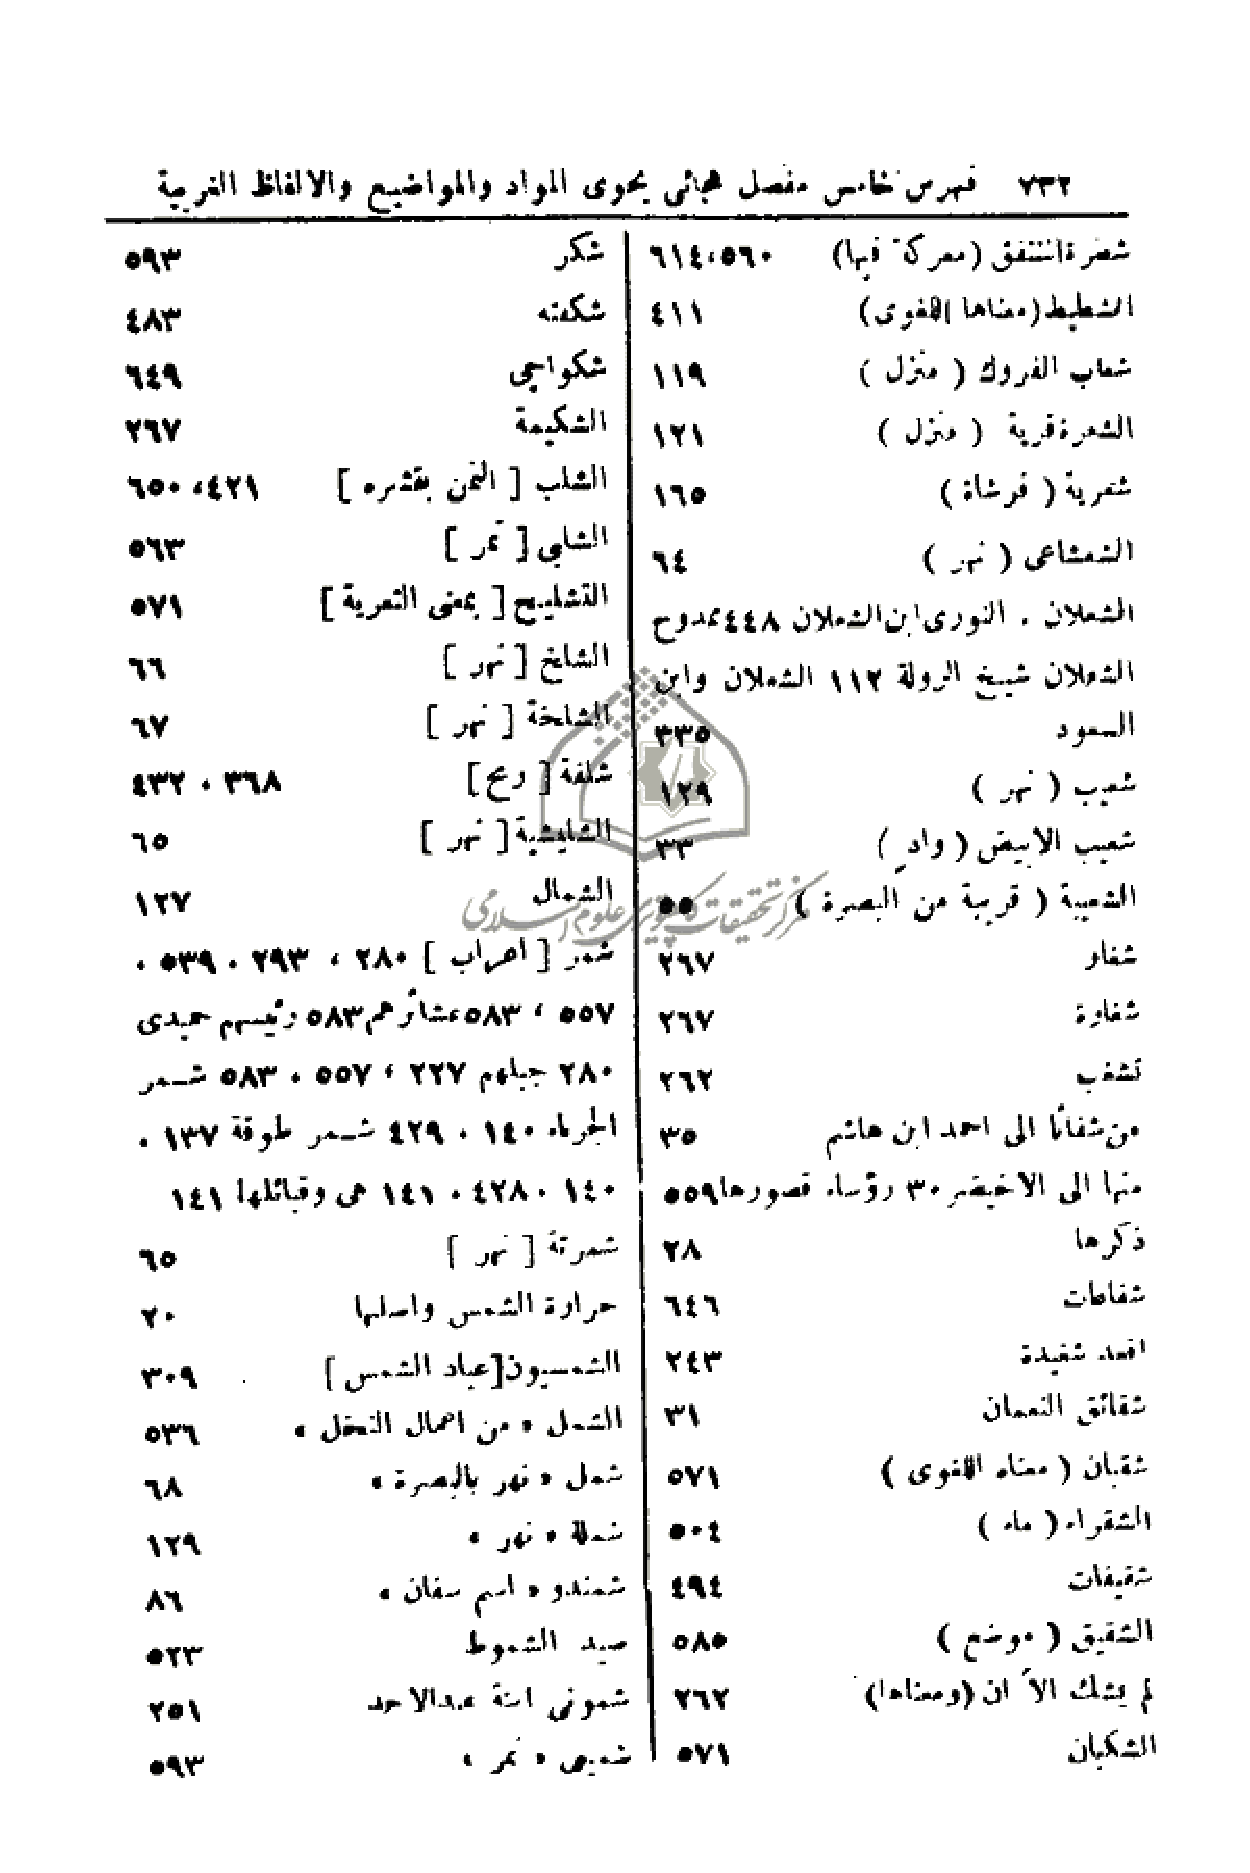 ٧٣٢ فهرس خامس مفصل هجائي يحوى المواد والمواضيع والالفاظ الغريبة
شضرة المنتفق (معركة فيها) ٥٦٠،٦١٤
الشطيط (معناها اللغوى) ٤١١
شعاب الفروك ( منزل ) ١١٩
الشعرة قرية ( منزل ) ١٢١
شعرية ( فرشاة ) ١٦٥
الشعشاعى ( نهر ) ٦٤
الشعلان . النورى ابن الشعلان ٤٤٨ ممدوح
الشعلان شيخ الرولة ١١٢ الشعلان وابن
السعود ٣٣٥
شعيب ( نهر ) ١٢٩
شعيب الابيض ( وادٍ ) ٣٣
الشعيبة ( قريبة من البصرة ) ٥٥
شغار ٢٦٧
شغارة ٢٦٧
تشغب ٢٦٢
من شفاثا الى احمد ابن هاشم ٣٥
منها الى الاخيضر ٣٠ رؤساء قصورها ٥٥٩
ذكرها ٢٨
شفاعات ٦٤٦
افعد شغيدة ٢٤٣
شقائق النعمان ٣١
شقبان ( معناه اللغوى ) ٥٧١
الشقراء ( ماء ) ٥٠٤
شقيفات ٤٩٤
الشقيق ( موضع ) ٥٨٥
لم يشك الاّ ان (ومعناها) ٢٦٢
الشكبان ٥٧١
شكر ٥٩٣
شكفته ٤٨٣
شكواجى ٦٤٩
الشكيمة ٢٦٧
الشلب [ التمن بقشره ] ٤٢١، ٦٥٠
الشلبي [ تمر ] ٥٦٣
التشليح [ بمعنى التعرية ] ٥٧١
الشلخ [ نهر ] ٦٦
الشلخة [ نهر ] ٦٧
شلفة [ رمح ] ٣٦٨ ، ٤٣٢
الشليشية [ نهر ] ٦٥
الشمال ١٢٧
شمر [ اعراب ] ٢٨٠ ، ٢٩٣ ، ٥٣٩ ،
٥٥٧ ، ٥٨٣ عشائرهم ٥٨٣ رئيسهم حميدى
٢٨٠ جبلهم ٢٢٧ ، ٥٥٧ ، ٥٨٣ شمر
الجرباء ١٤٠ ، ٤٢٩ شمر طوقة ١٣٧ ،
١٤٠ ، ٤٢٨ ، ١٤١ هى وقبائلها ١٤١
شمرتة [ نهر ] ٦٥
حرارة الشمس واصلها ٢٠
الشمسيون [عباد الشمس ] ٣٠٩
الشمل « من احمال النخل » ٥٣٦
شمل « نهر بالبصرة » ٦٨
شملة « نهر » ١٢٩
شمندو « اسم سفان » ٨٦
صيد الشموط ٥٢٣
شمونى ابنة عبدالاحد ٢٥١
شميصى « تمر » ٥٩٣
مركز تحقيقات كامپيوترى علوم اسلامى